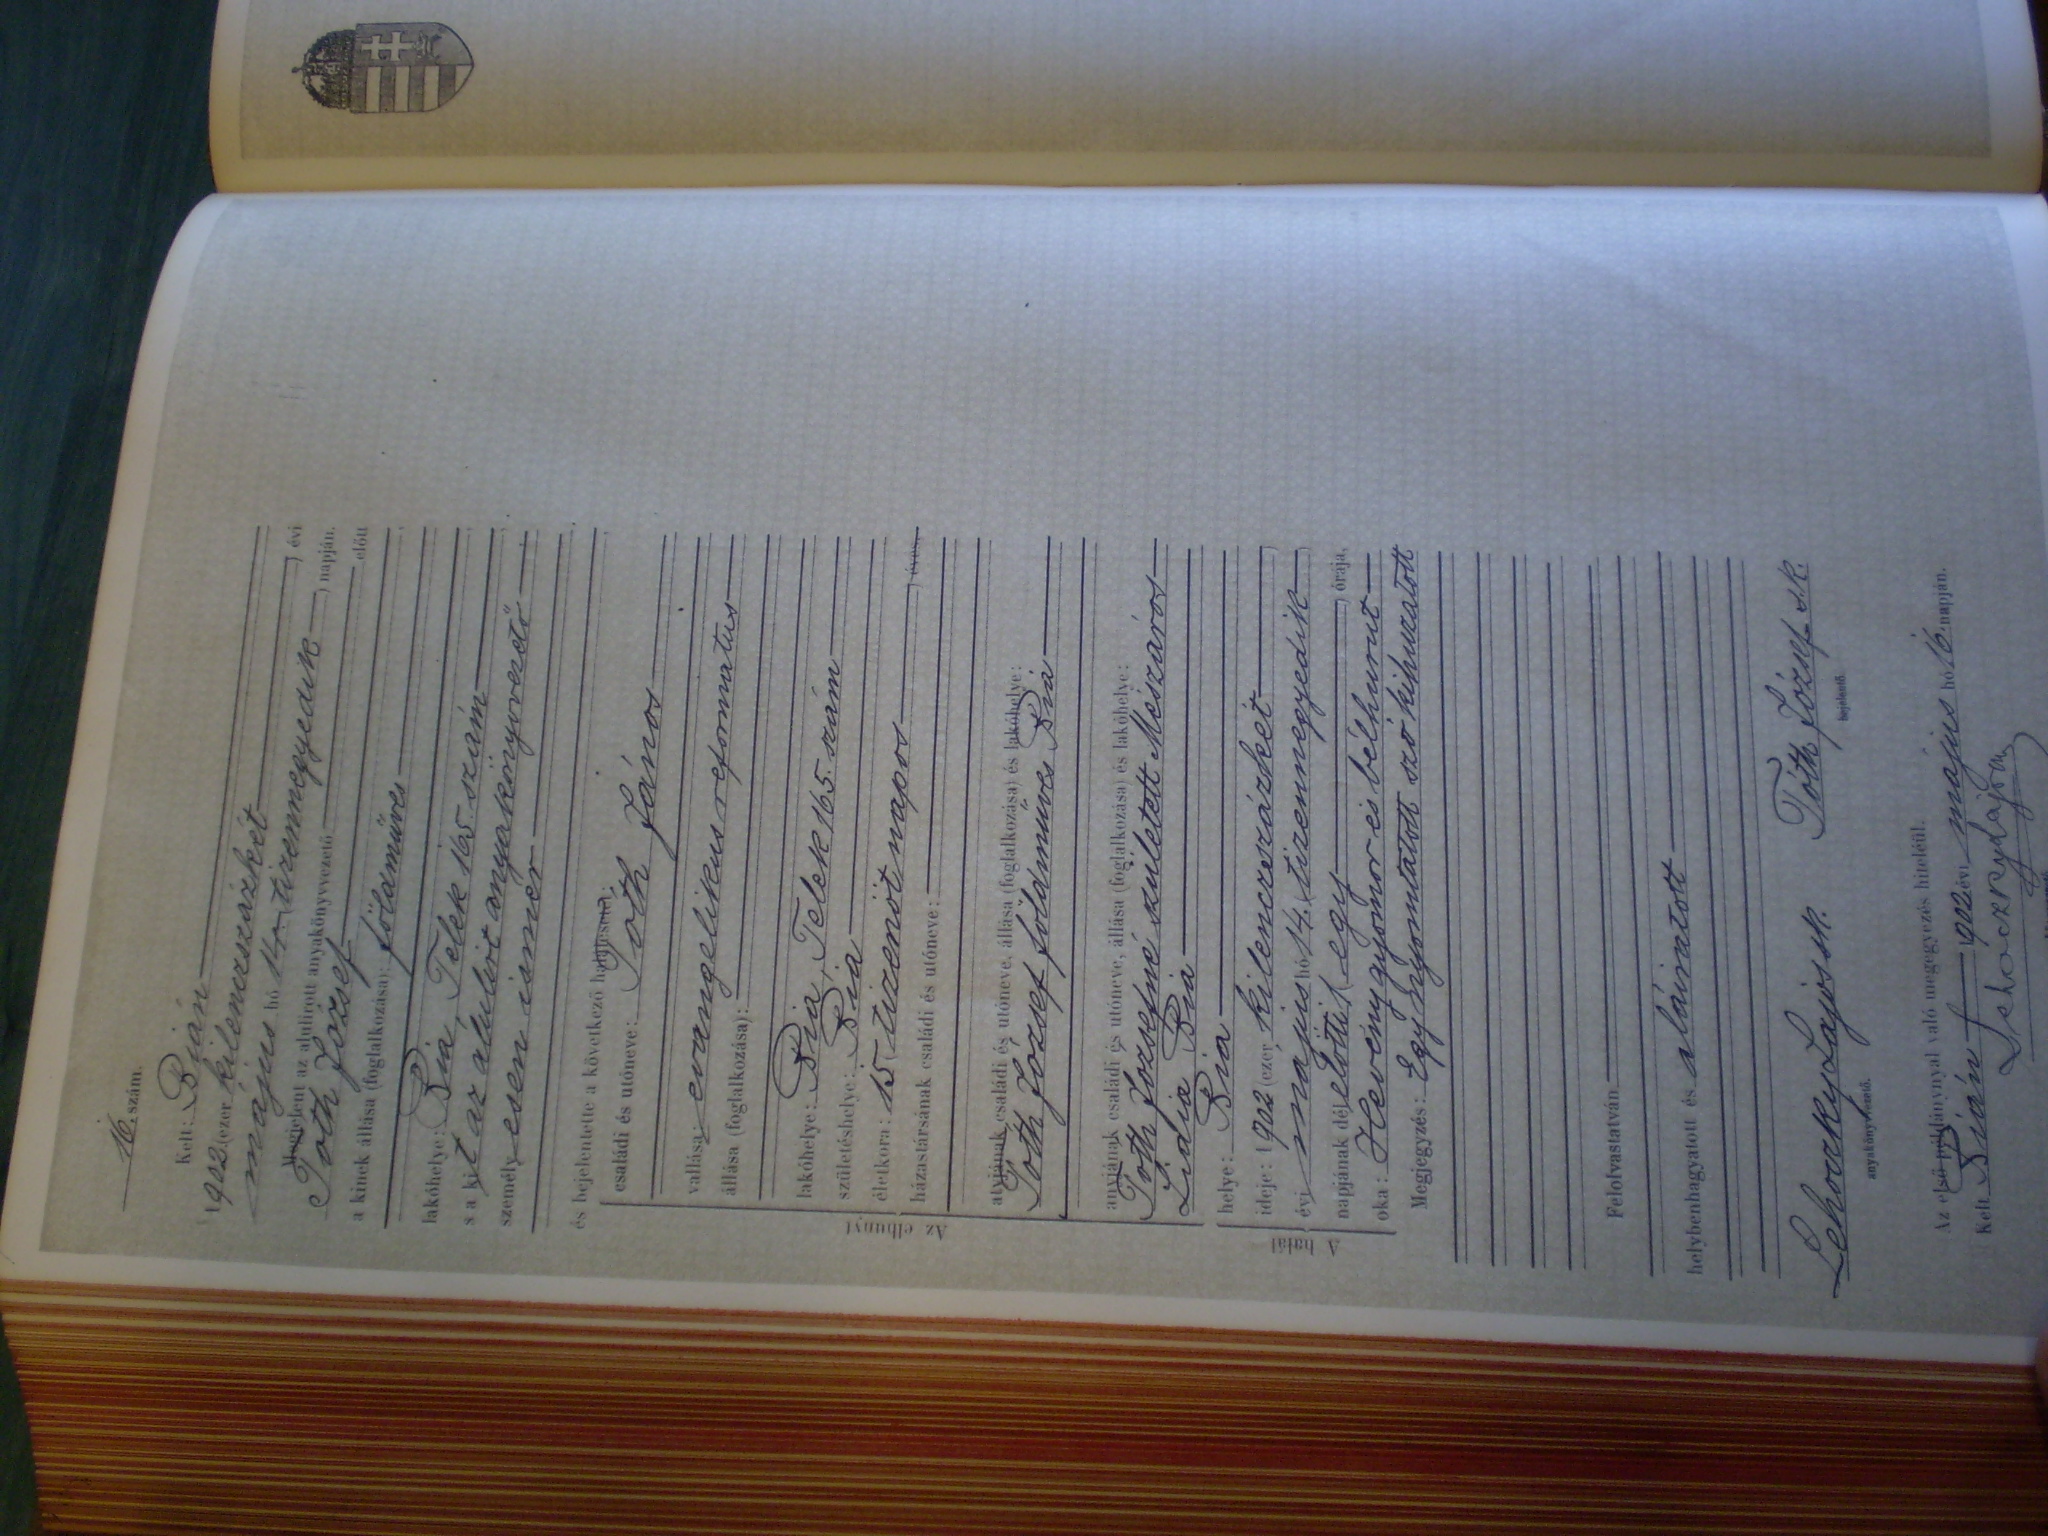 16. szám.
Kelt: Bián
1902 (ezer kilenczszázkét ) évi
május hó 14 (tizennegyedik ) napján.
Megjelent az alulirott anyakönyvvezető előtt
Tóth József
a kinek állása (foglalkozása): földműves
lakóhelye: Bia, Telek 165. szám
s a kit az alulirt anyakönyvvezető
személyesen ismer
és bejelentette a következő halálesetet
Az elhunyt
családi és utóneve: Tóth János
vallása: evangelikus reformatus
állása (foglalkozása):
lakóhelye: Bia, Telek 165. szám
születéshelye: Bia
életkora: 15 (tizenöt napos ) éves,
házastársának családi és utóneve:
atyjának családi és utóneve, állása (foglalkozása) és lakóhelye:
Tóth József földműves Bia
anyjának családi és utóneve, állása (foglalkozása) és lakóhelye:
Tóth Józsefné született Mészáros
Lidia Bia
A halál
helye: Bia
ideje: 1902 (ezer kilenczszázkét )
évi május hó 14. (tizennegyedik )
napjának délelőtti 1 (egy ) órája,
oka: Heveny gyomor és bélhurut
Megjegyzés: Egy nyomtatott szó kihuzatott
Felolvastatván
helybenhagyatott és aláiratott
Lehoczky Lajos sk. Tóth József s.k.
anyakönyvvezető. bejelentő.
Az első példánynyal való megegyezés hiteléül.
Kelt Bián 1902 évi május hó 16. napján.
Lehoczky Lajos